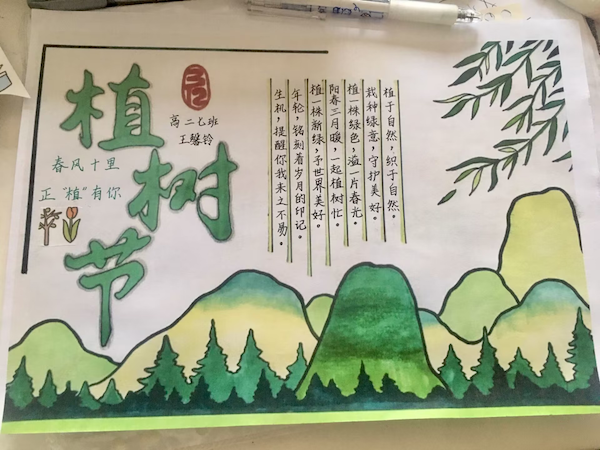 植树节
高二七班
王馨铃
春风十里
正“植”有你
植于自然，织于自然
栽种绿意，守护美好。
植一株绿色，溢一片春光。
阳春三月暖，一起植树忙。
植一株新绿，予世界美好。
年轮，铭刻着岁月的印记。
生机，提醒你我来之不易。